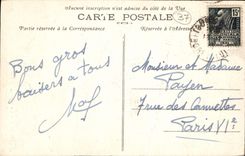 Aucune inscription n'est admise du côté de la Vue
CARTE POSTALE
37
15
Partie réservée à la Correspondance
Réservé à l'Adresse
Bons gros
baisers à tous
Monsieur et Madame
Payen
7 rue des Canettes
Paris VIe